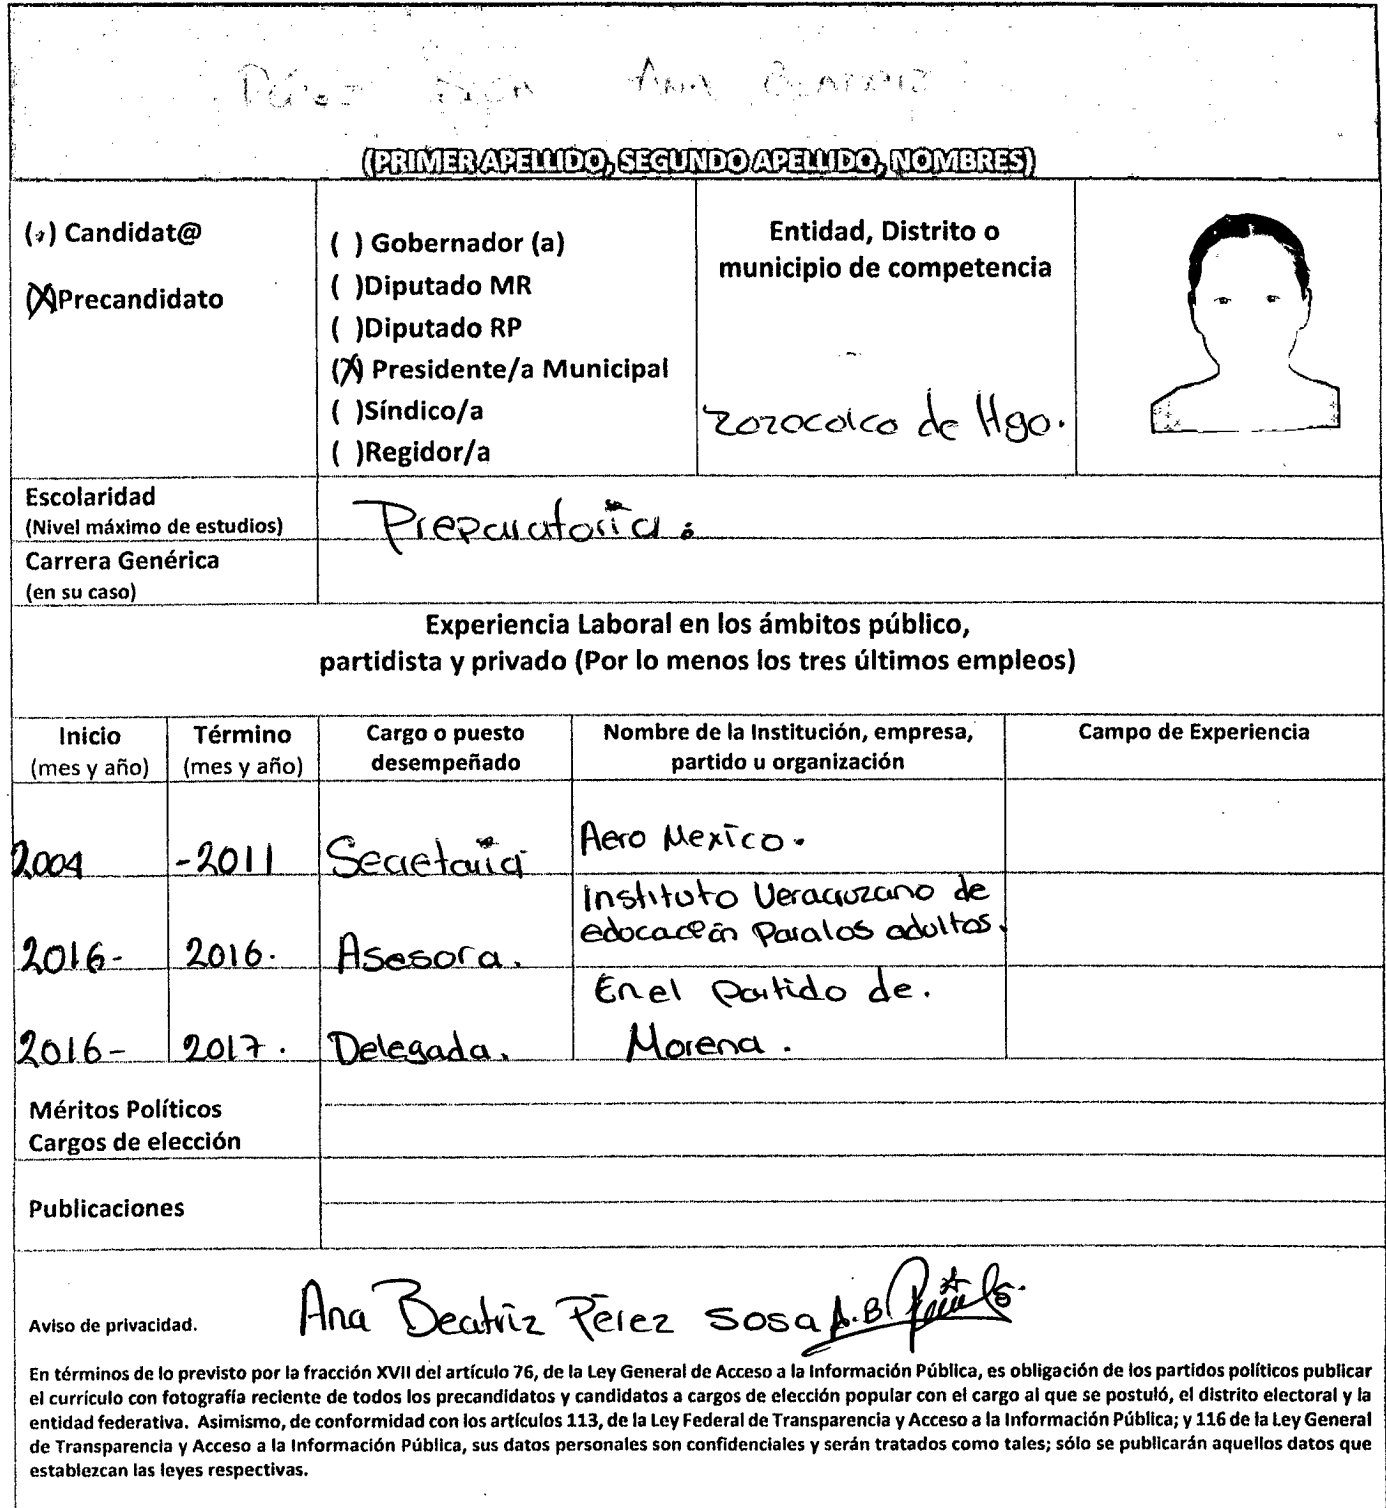 Pérez Ana Beatriz
(PRIMER APELLIDO, SEGUNDO APELLIDO, NOMBRES)
( ) Candidat@
(X)Precandidato
( ) Gobernador (a)
( )Diputado MR
( )Diputado RP
(X) Presidente/a Municipal
( )Síndico/a
( )Regidor/a
Entidad, Distrito o
municipio de competencia
zozocolco de Hgo.
Escolaridad
(Nivel máximo de estudios)
Preparatoria.
Carrera Genérica
(en su caso)
Experiencia Laboral en los ámbitos público,
partidista y privado (Por lo menos los tres últimos empleos)
Inicio
(mes y año)
Término
(mes y año)
Cargo o puesto
desempeñado
Nombre de la Institución, empresa,
partido u organización
Campo de Experiencia
2004 -2011 Secretaria Aero Mexico.
Instituto Veracruzano de
educación Para los adultos.
2016- 2016. Asesora.
En el Partido de.
2016- 2017. Delegada. Morena.
Méritos Políticos
Cargos de elección
Publicaciones
Aviso de privacidad.
Ana Beatriz Pérez sosa A.B
En términos de lo previsto por la fracción XVII del artículo 76, de la Ley General de Acceso a la Información Pública, es obligación de los partidos políticos publicar
el currículo con fotografía reciente de todos los precandidatos y candidatos a cargos de elección popular con el cargo al que se postuló, el distrito electoral y la
entidad federativa. Asimismo, de conformidad con los artículos 113, de la Ley Federal de Transparencia y Acceso a la Información Pública; y 116 de la Ley General
de Transparencia y Acceso a la Información Pública, sus datos personales son confidenciales y serán tratados como tales; sólo se publicarán aquellos datos que
establezcan las leyes respectivas.